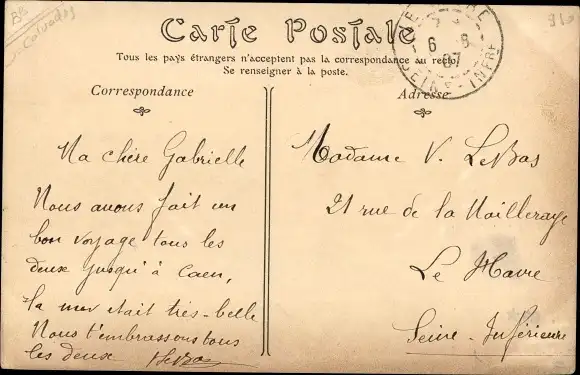 Calvados
Carte Postale
Tous les pays étrangers n'acceptent pas la correspondance au recto.
Se renseigner à la poste.
Correspondance
Adresse
6 - 8
07
SEINE-INFRE
Ma chère Gabrielle
Nous avons fait un
bon voyage tous les
deux jusqu'à Caen,
la mer était très-belle
Nous t'embrassons tous
les deux
Madame V. LeBas
21 rue de la Mailleraye
Le Havre
Seine-Inférieure